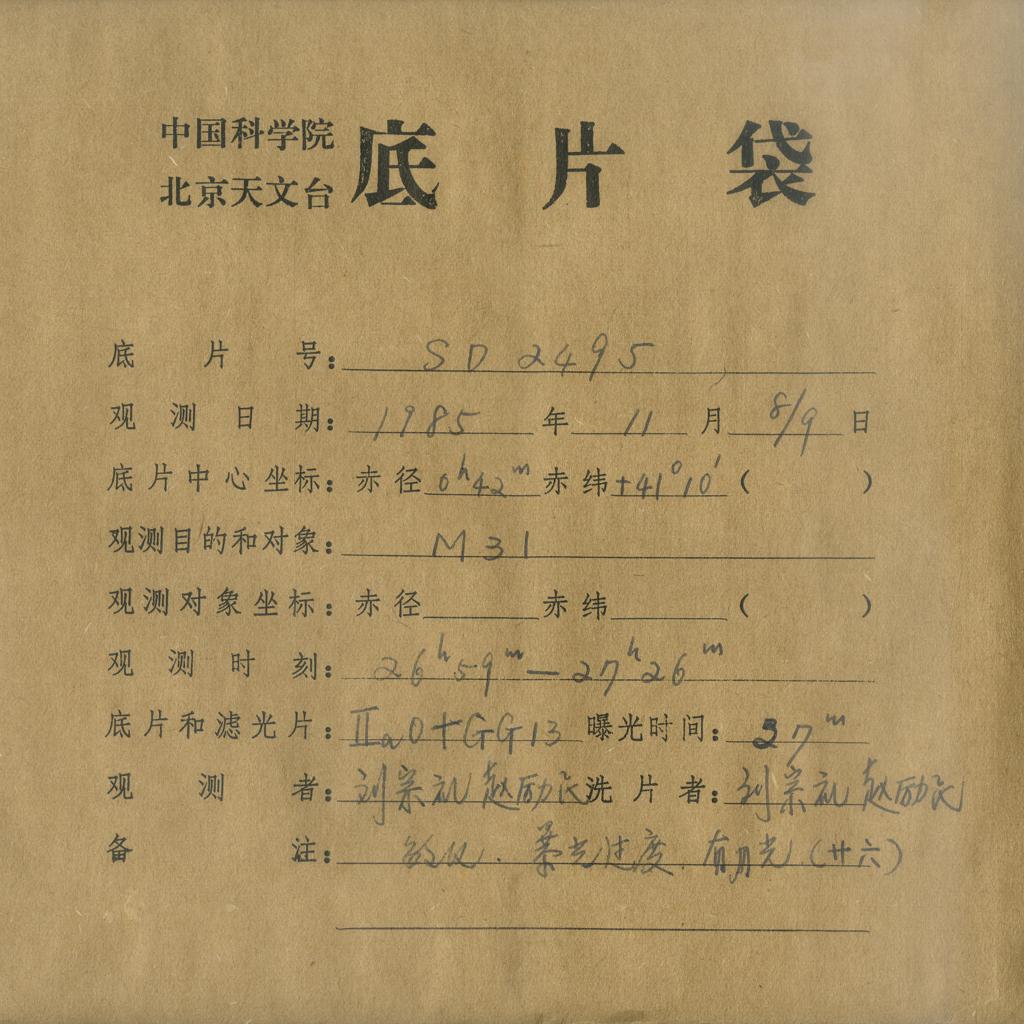 中国科学院
北京天文台
底片袋
底片号: SD 2495
观测日期: 1985 年 11 月 8/9 日
底片中心坐标: 赤径 0h42m 赤纬 +41°10′ ( )
观测目的和对象: M31
观测对象坐标: 赤径 赤纬 ( )
观测时刻: 26h59m—27h26m
底片和滤光片: IIaO+GG13 曝光时间: 27m
观测者: 刘宗礼 赵励民 洗片者: 刘宗礼 赵励民
备注: 曝光过度. 有月光 (廿六)